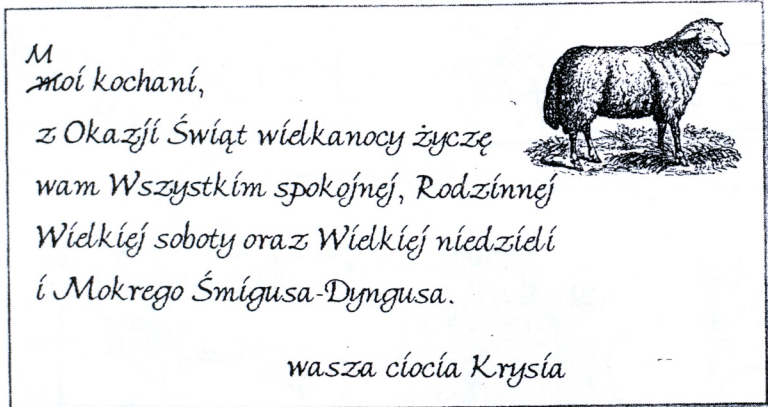 M
moi kochani,
z Okazji Świąt wielkanocy życzę
wam Wszystkim spokojnej, Rodzinnej
Wielkiej soboty oraz Wielkiej niedzieli
i Mokrego Śmigusa-Dyngusa.
wasza ciocia Krysia